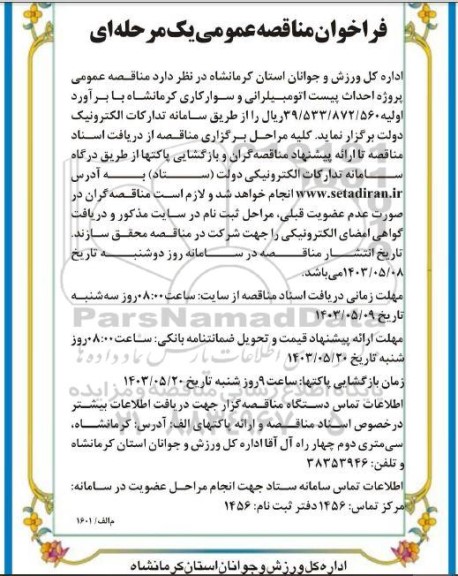 فراخوان مناقصه عمومی یک مرحله‌ای
اداره کل ورزش و جوانان استان کرمانشاه در نظر دارد مناقصه عمومی
پروژه احداث پیست اتومبیلرانی و سوارکاری کرمانشاه با برآورد
اولیه ۳۹/۵۳۳/۸۷۲/۵۶۰ریال را از طریق سامانه تدارکات الکترونیک
دولت برگزار نماید. کلیه مراحل برگزاری مناقصه از دریافت اسناد
مناقصه تا ارائه پیشنهاد مناقصه‌گران و بازگشایی پاکتها از طریق درگاه
سامانه تدارکات الکترونیکی دولت (ستاد) به آدرس
www.setadiran.ir انجام خواهد شد و لازم است مناقصه‌گران در
صورت عدم عضویت قبلی، مراحل ثبت نام در سایت مذکور و دریافت
گواهی امضای الکترونیکی را جهت شرکت در مناقصه محقق سازند.
تاریخ انتشار مناقصه در سامانه روز دوشنبه تاریخ
۱۴۰۳/۰۵/۰۸می‌باشد.
مهلت زمانی دریافت اسناد مناقصه از سایت: ساعت ۰۸:۰۰روز سه‌شنبه
تاریخ ۱۴۰۳/۰۵/۰۹
مهلت ارائه پیشنهاد قیمت و تحویل ضمانتنامه بانکی: ساعت ۰۸:۰۰روز
شنبه تاریخ ۱۴۰۳/۰۵/۲۰
زمان بازگشایی پاکتها: ساعت ۹روز شنبه تاریخ ۱۴۰۳/۰۵/۲۰
اطلاعات تماس دستگاه مناقصه‌گزار جهت دریافت اطلاعات بیشتر
درخصوص اسناد مناقصه و ارائه پاکتهای الف: آدرس: کرمانشاه،
سی‌متری دوم چهار راه آل آقا اداره کل ورزش و جوانان استان کرمانشاه
و تلفن: ۳۸۳۵۳۹۴۶
اطلاعات تماس سامانه ستاد جهت انجام مراحل عضویت در سامانه:
مرکز تماس: ۱۴۵۶ دفتر ثبت نام: ۱۴۵۶
م‌الف/۱۶۰۱
اداره کل ورزش و جوانان استان کرمانشاه
ParsNamadData